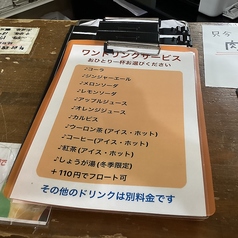 ワンドリンクサービス
おひとり一杯お選びください
♪コーラ
♪ジンジャーエール
♪メロンソーダ
♪レモンソーダ
♪アップルジュース
♪オレンジジュース
♪カルピス
♪ウーロン茶(アイス・ホット)
♪コーヒー(アイス・ホット)
♪紅茶(アイス・ホット)
♪しょうが湯(冬季限定)
+110円でフロート可
その他のドリンクは別料金です
只今